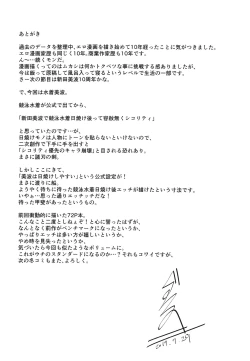 あとがき
過去のデータを整理中、エロ漫画を描き始めて10年経ったことに気がつきました。
エロ漫画家歴も同じく10年、商業作家歴も10年です。
ん〜…続くモンだ。
漫画描くってのはムカシは何かトクベツな事に挑戦する感ありましたが、
今は座って原稿して風呂入って寝るというレベルで生活の一部です。
さース次の節目は新田美波10周年かな。
で、今回は水着美波。
競泳水着が公式で出てから、
「新田美波で競泳水着日焼け後って容赦無くシコリティ」
と思っていたのですが…、
日焼けモノは人物にトーンを貼らないといけないので、
二次創作で下手に手を出すと
「シコリティ優先のキャラ崩壊」と目される恐れあり。
まさに諸刃の剣。
しかしここにきて、
「美波は日焼けしやすい」という公式設定が！
まさに渡りに船。
ようやく待ちに待った競泳水着日焼け後エッチが描けたという寸法です。
いやぁ…思った通りエッチナだった！
待った甲斐があったというもの。
前回衝動的に描いた72P本。
こんなこと二度としねぇぞ！と心に誓ったはずが、
なんとなく前作がベンチマークになったというか、
やっぱりエッチは多い方が嬉しいというか、
やめ時を見失ったというか、
気づいたら今回も似たようなボリュームに。
これがウチのスタンダードになるのか…？それもコワイですが、
次の冬コミもまた、よろしく。